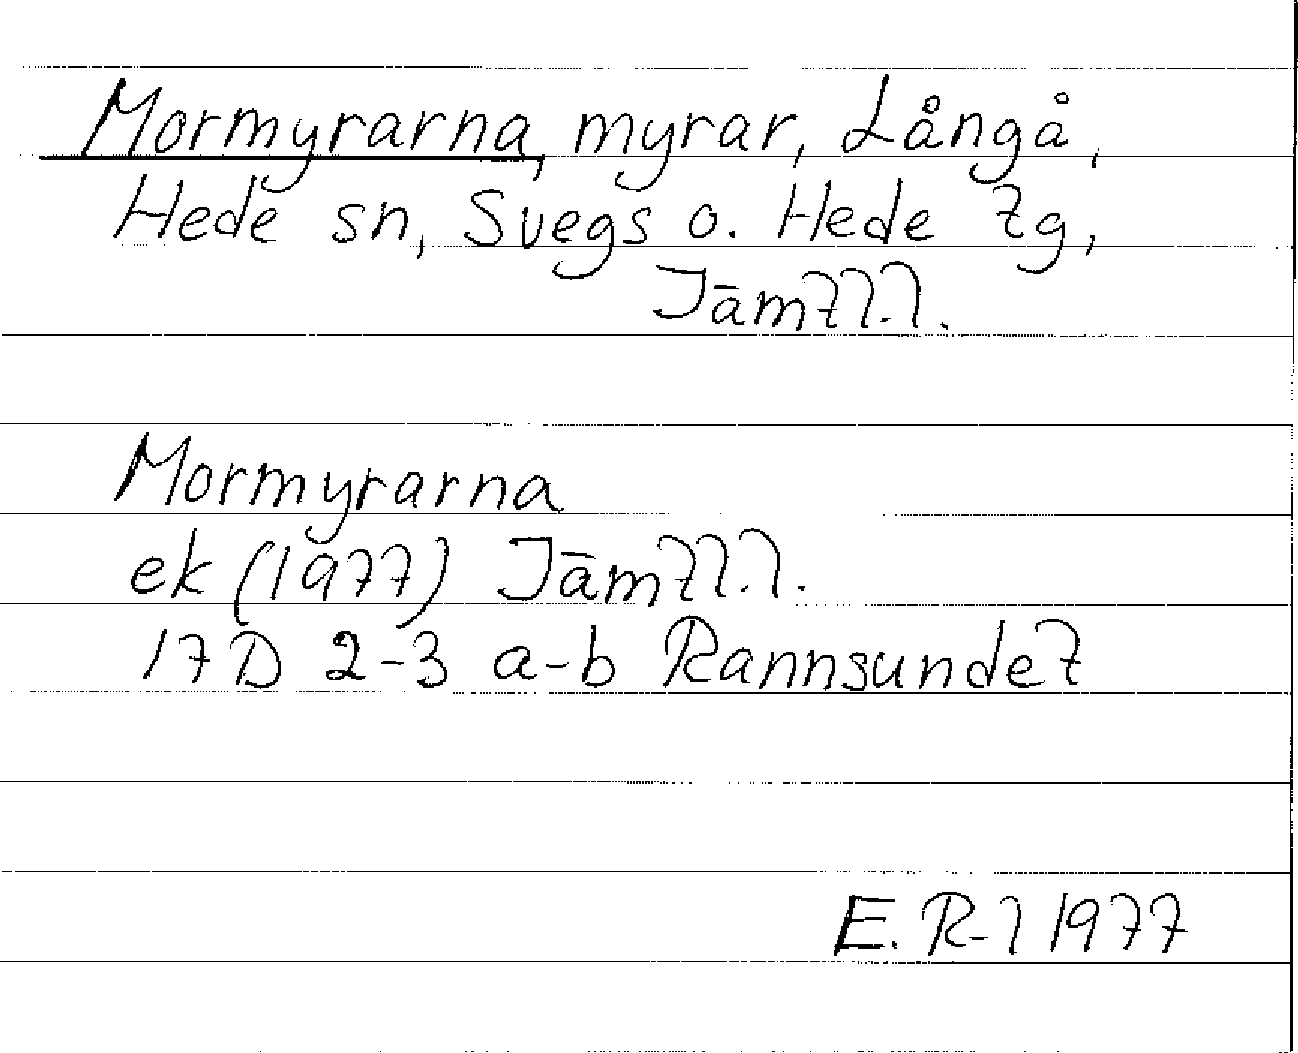 Mormyrarna, myrar, Långå,
Hede sn, Svegs o. Hede tg,
Jämtl.l.
Mormyrarna
ek (1977) Jämtl.l.
17D 2-3 a-b Rannsundet
E. R-l 1977